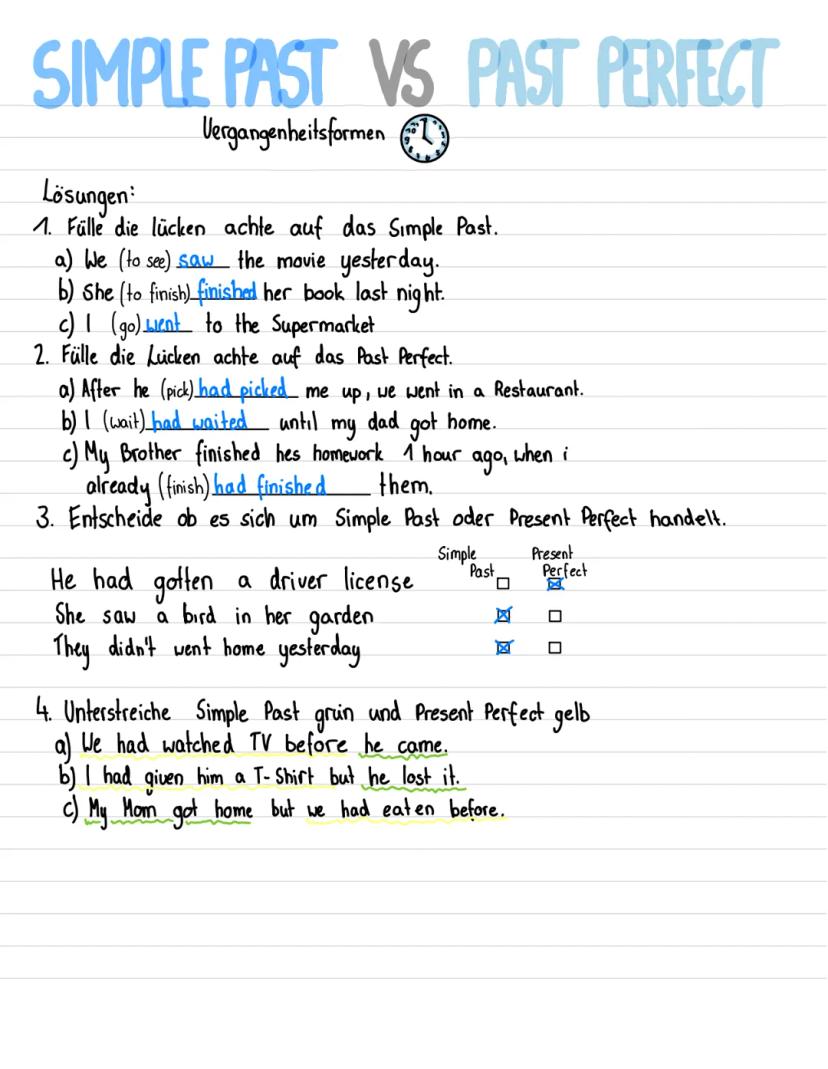 SIMPLE PAST VS PAST PERFECT
Vergangenheitsformen
Lösungen:
1. Fülle die lücken achte auf das Simple Past.
a) We (to see) saw the movie yesterday.
b) She (to finish) finished her book last night.
c) I (go) went to the Supermarket
2. Fülle die Lücken achte auf das Past Perfect.
a) After he (pick) had picked me up, we went in a Restaurant.
b) I (wait) had waited until my dad got home.
c) My Brother finished hes homework 1 hour ago, when i
already (finish) had finished them.
3. Entscheide ob es sich um Simple Past oder Present Perfect handelt.
Simple Present
Past Perfect
He had gotten a driver license
She saw a bird in her garden
They didn't went home yesterday
4. Unterstreiche Simple Past grün und Present Perfect gelb
a) We had watched TV before he came.
b) I had given him a T-Shirt but he lost it.
c) My Mom got home but we had eaten before.